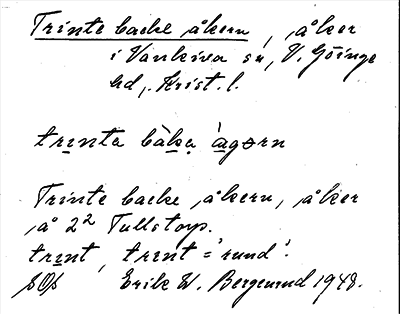 Trinte backe åkern, åker
i Vankiva sn, V. Göinge
hd, Krist. l.
trinta bàka ̀agørn
Trinte backe åkern, åker
å 2² Tullstorp.
trint, trint = 'rund'.
Erik W. Bergeurud 1948.